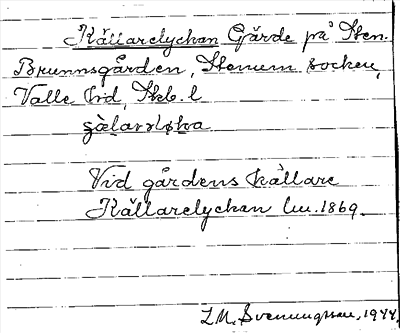 Källarelyckan Gärde på Sten.
Brunnsgården, Stenum socken,
Valle hd, Skb. l
Vid gårdens källare
Källarelyckan lm. 1869
L.M. Svenungsson, 1944.